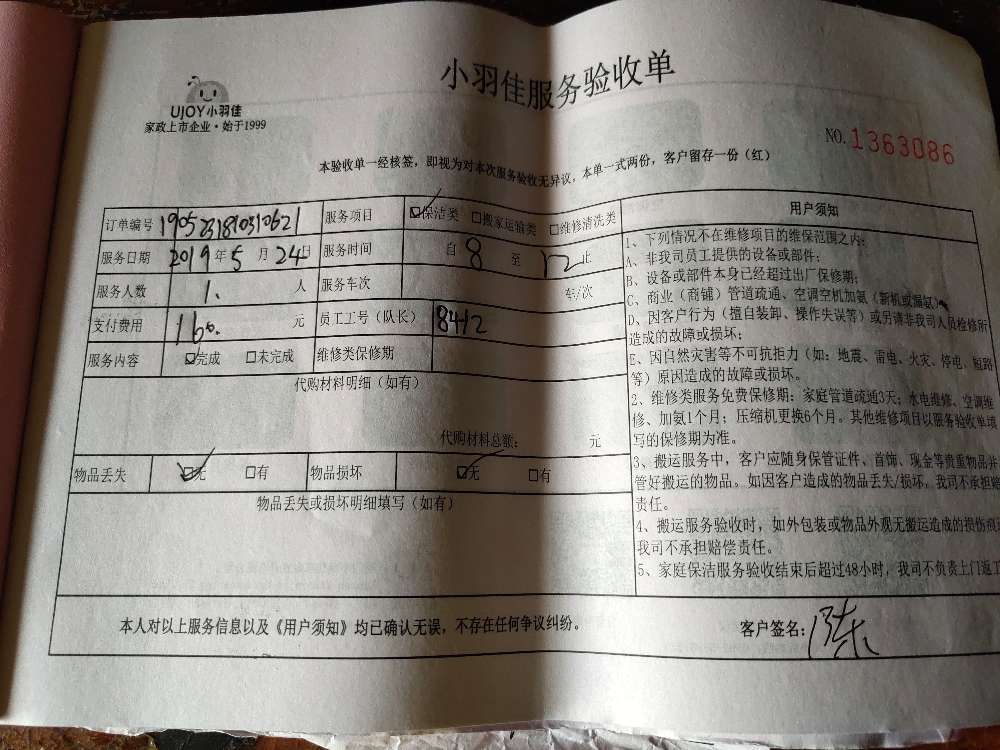 小羽佳服务验收单
UJOY小羽佳
家政上市企业·始于1999
NO.1363086
本验收单一经核签，即视为对本次服务验收无异议，本单一式两份，客户留存一份（红）
订单编号 服务项目 保洁类 搬家运输类 维修清洗类
服务日期 2019年5月24日 服务时间 自8至12止
服务人数 1. 人 服务车次 车/次
支付费用 160. 元 员工工号（队长） 8412
服务内容 完成 未完成 维修类保修期
代购材料明细（如有）
代购材料总额： 元
物品丢失 无 有 物品损坏 无 有
物品丢失或损坏明细填写（如有）
用户须知
1、下列情况不在维修项目的维保范围之内：
A、非我司员工提供的设备或部件；
B、设备或部件本身已经超过出厂保修期；
C、商业（商铺）管道疏通、空调空机加氨（新机或漏氨）
D、因客户行为（擅自装卸、操作失误等）或另请非我司人员检修所
造成的故障或损坏；
E、因自然灾害等不可抗拒力（如：地震、雷电、火灾、停电、短路
等）原因造成的故障或损坏。
2、维修类服务免费保修期：家庭管道疏通3天；水电维修、空调维
修、加氨1个月；压缩机更换6个月。其他维修项目以服务验收单填
写的保修期为准。
3、搬运服务中，客户应随身保管证件、首饰、现金等贵重物品并
管好搬运的物品。如因客户造成的物品丢失/损坏，我司不承担赔
责任。
4、搬运服务验收时，如外包装或物品外观无搬运造成的损伤痕
我司不承担赔偿责任。
5、家庭保洁服务验收结束后超过48小时，我司不负责上门返工
本人对以上服务信息以及《用户须知》均已确认无误，不存在任何争议纠纷。
客户签名：陈